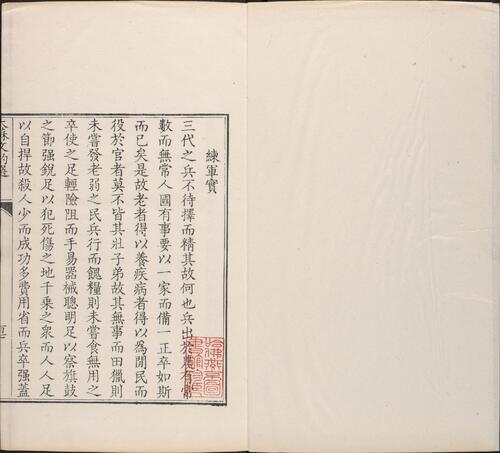 練軍實
三代之兵不待擇而精其故何也兵出於農有常
數而無常人國有事要以一家而備一正卒如斯
而已矣是故老者得以養疾病者得以爲閒民而
役於官者莫不皆其壯子弟故其無事而田獵則
未嘗發老弱之民兵行而餽糧則未嘗食無用之
卒使之足輕險阻而手易器械聰明足以察旗鼓
之節强銳足以犯死傷之地千乘之衆而人人足
以自捍故殺人少而成功多費用省而兵卒强蓋